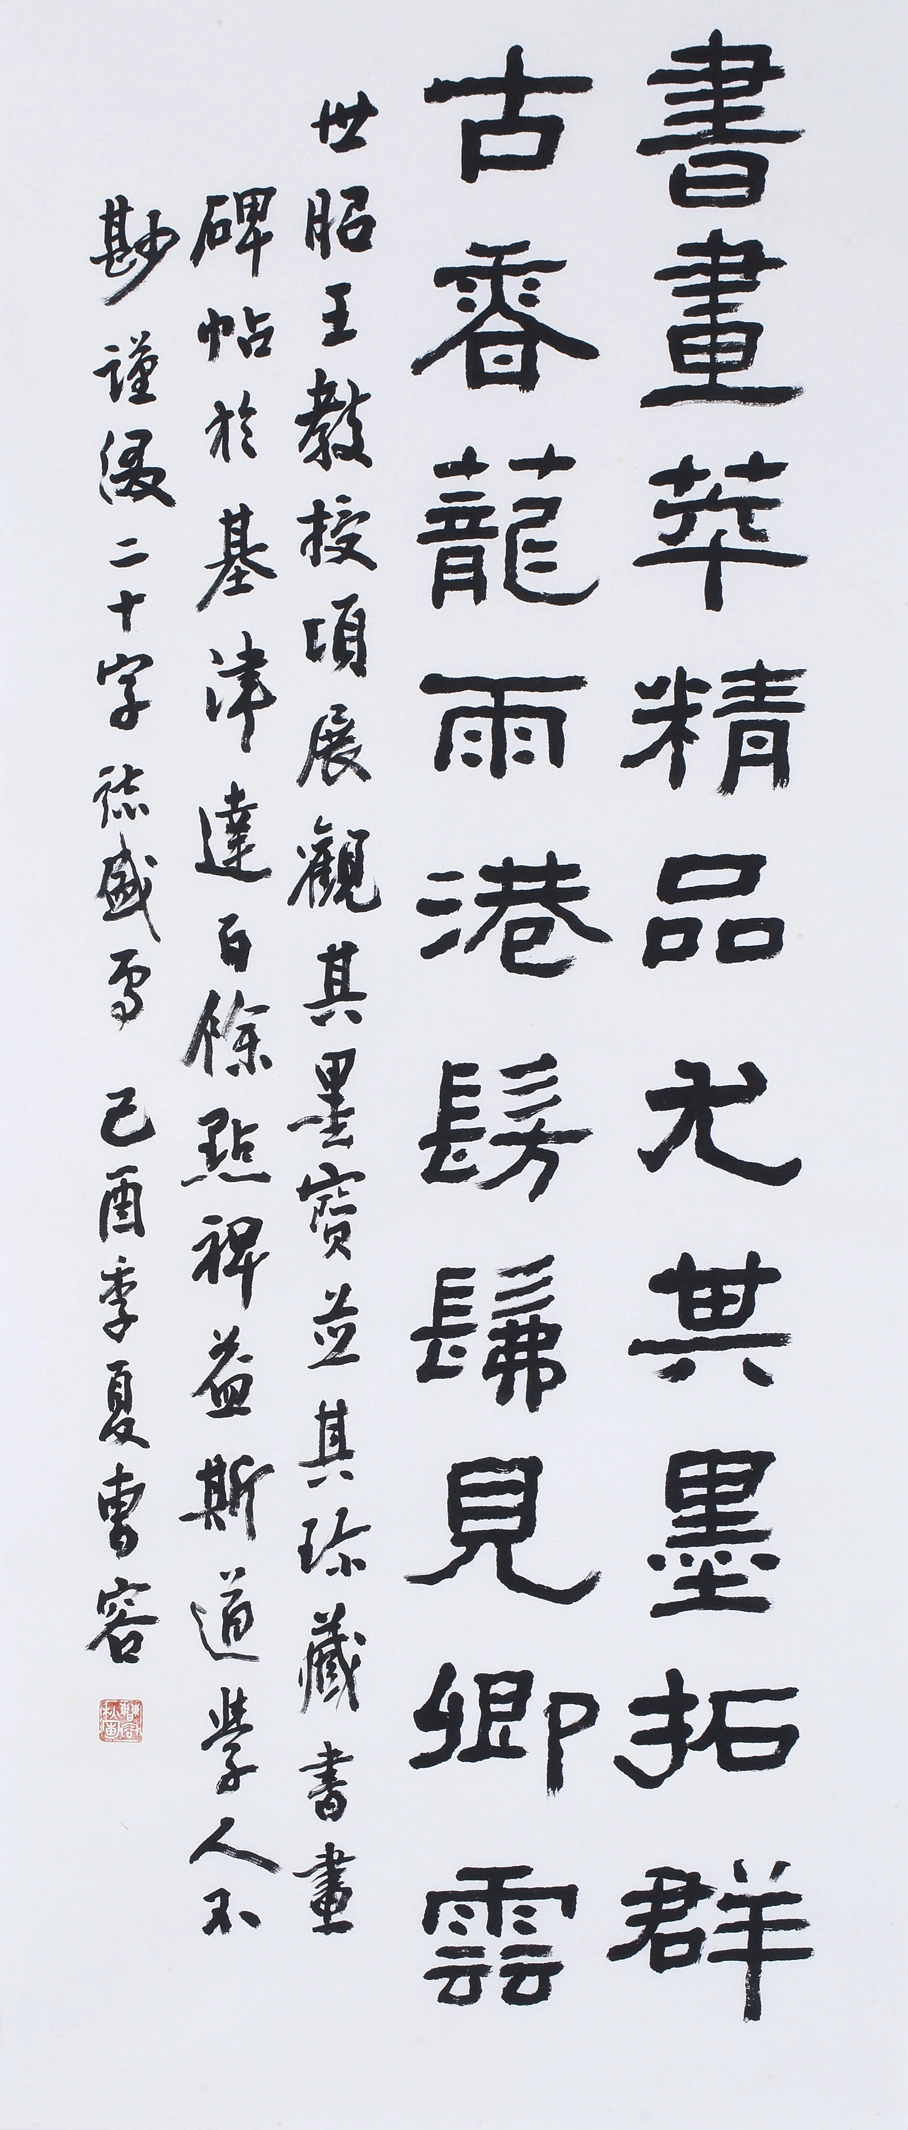 書畫萃精品尤其墨拓群
古香蘢雨港髣髴見卿雲
世昭王教授頃展觀其墨寶並其珍藏書畫
碑帖於基津達百餘點裨益斯道學人不
尠謹綴二十字誌盛焉 己酉季夏曹容
曹容秋圃